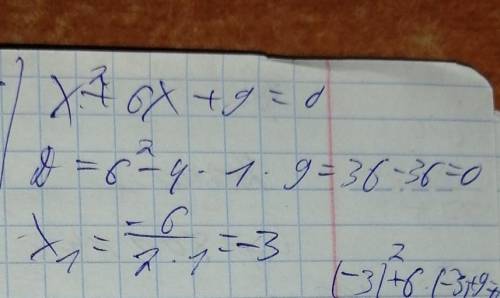 x² + 6x + 9 = 0
D = 6² - 4 · 1 · 9 = 36 - 36 = 0
x₁ = -6 / 2 · 1 = -3
(-3)² + 6 · (-3) + 9